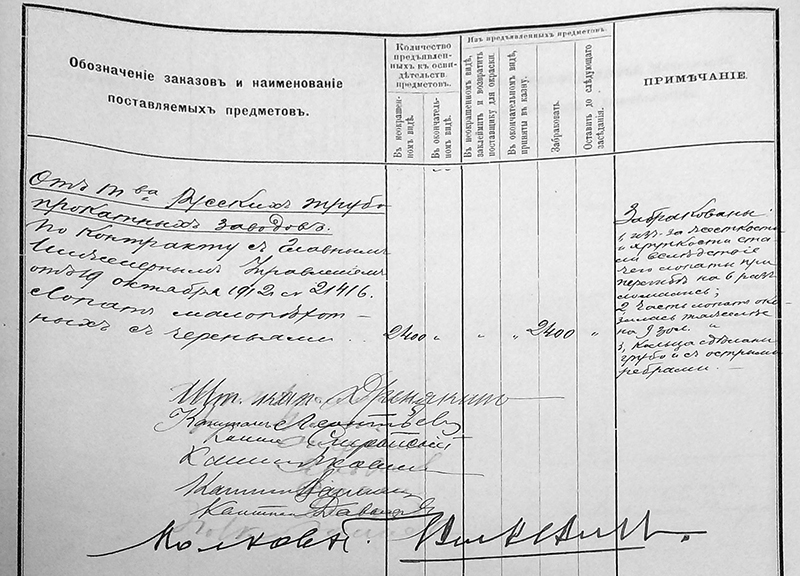 Обозначеніе заказовъ и наименованіе
поставляемыхъ предметовъ.
Количество
предъявлен-
ныхъ къ осви-
дѣтельств.
предметовъ.
Въ неокрашен-
номъ видѣ.
Въ окончатель-
номъ видѣ.
Изъ предъявленныхъ предметовъ.
Въ неокрашенномъ видѣ,
заклеймить и возвратить
поставщику для окраски.
Въ окончательномъ видѣ,
приняты въ казну.
Забраковать.
Оставить до слѣдующаго
засѣданія.
ПРИМѢЧАНІЕ.
Отъ Т-ва Русскихъ трубо
прокатныхъ заводовъ.
По контракту съ Главнымъ
Инженернымъ Управленіемъ
отъ 19 октября 1912 г. № 21416.
Лопатъ малопѣхот-
ныхъ съ череньями .. 2400 " " " 2400 "
Забракованы:
1, изъ-за жесткости
и хрупкости ста
ли вслѣдствіе
чего лопаты при
перегибѣ на б раз
ломались;
2, часть лопатъ ока
залась тяжелѣе
на 9 зол. "
3, Кольца сдѣланы
грубо и съ острыми
ребрами. —
Шт. кап.
Капитанъ Леонтьев
Капит.
Капит.
Капитан
Капитан Давыдов
Полковн.